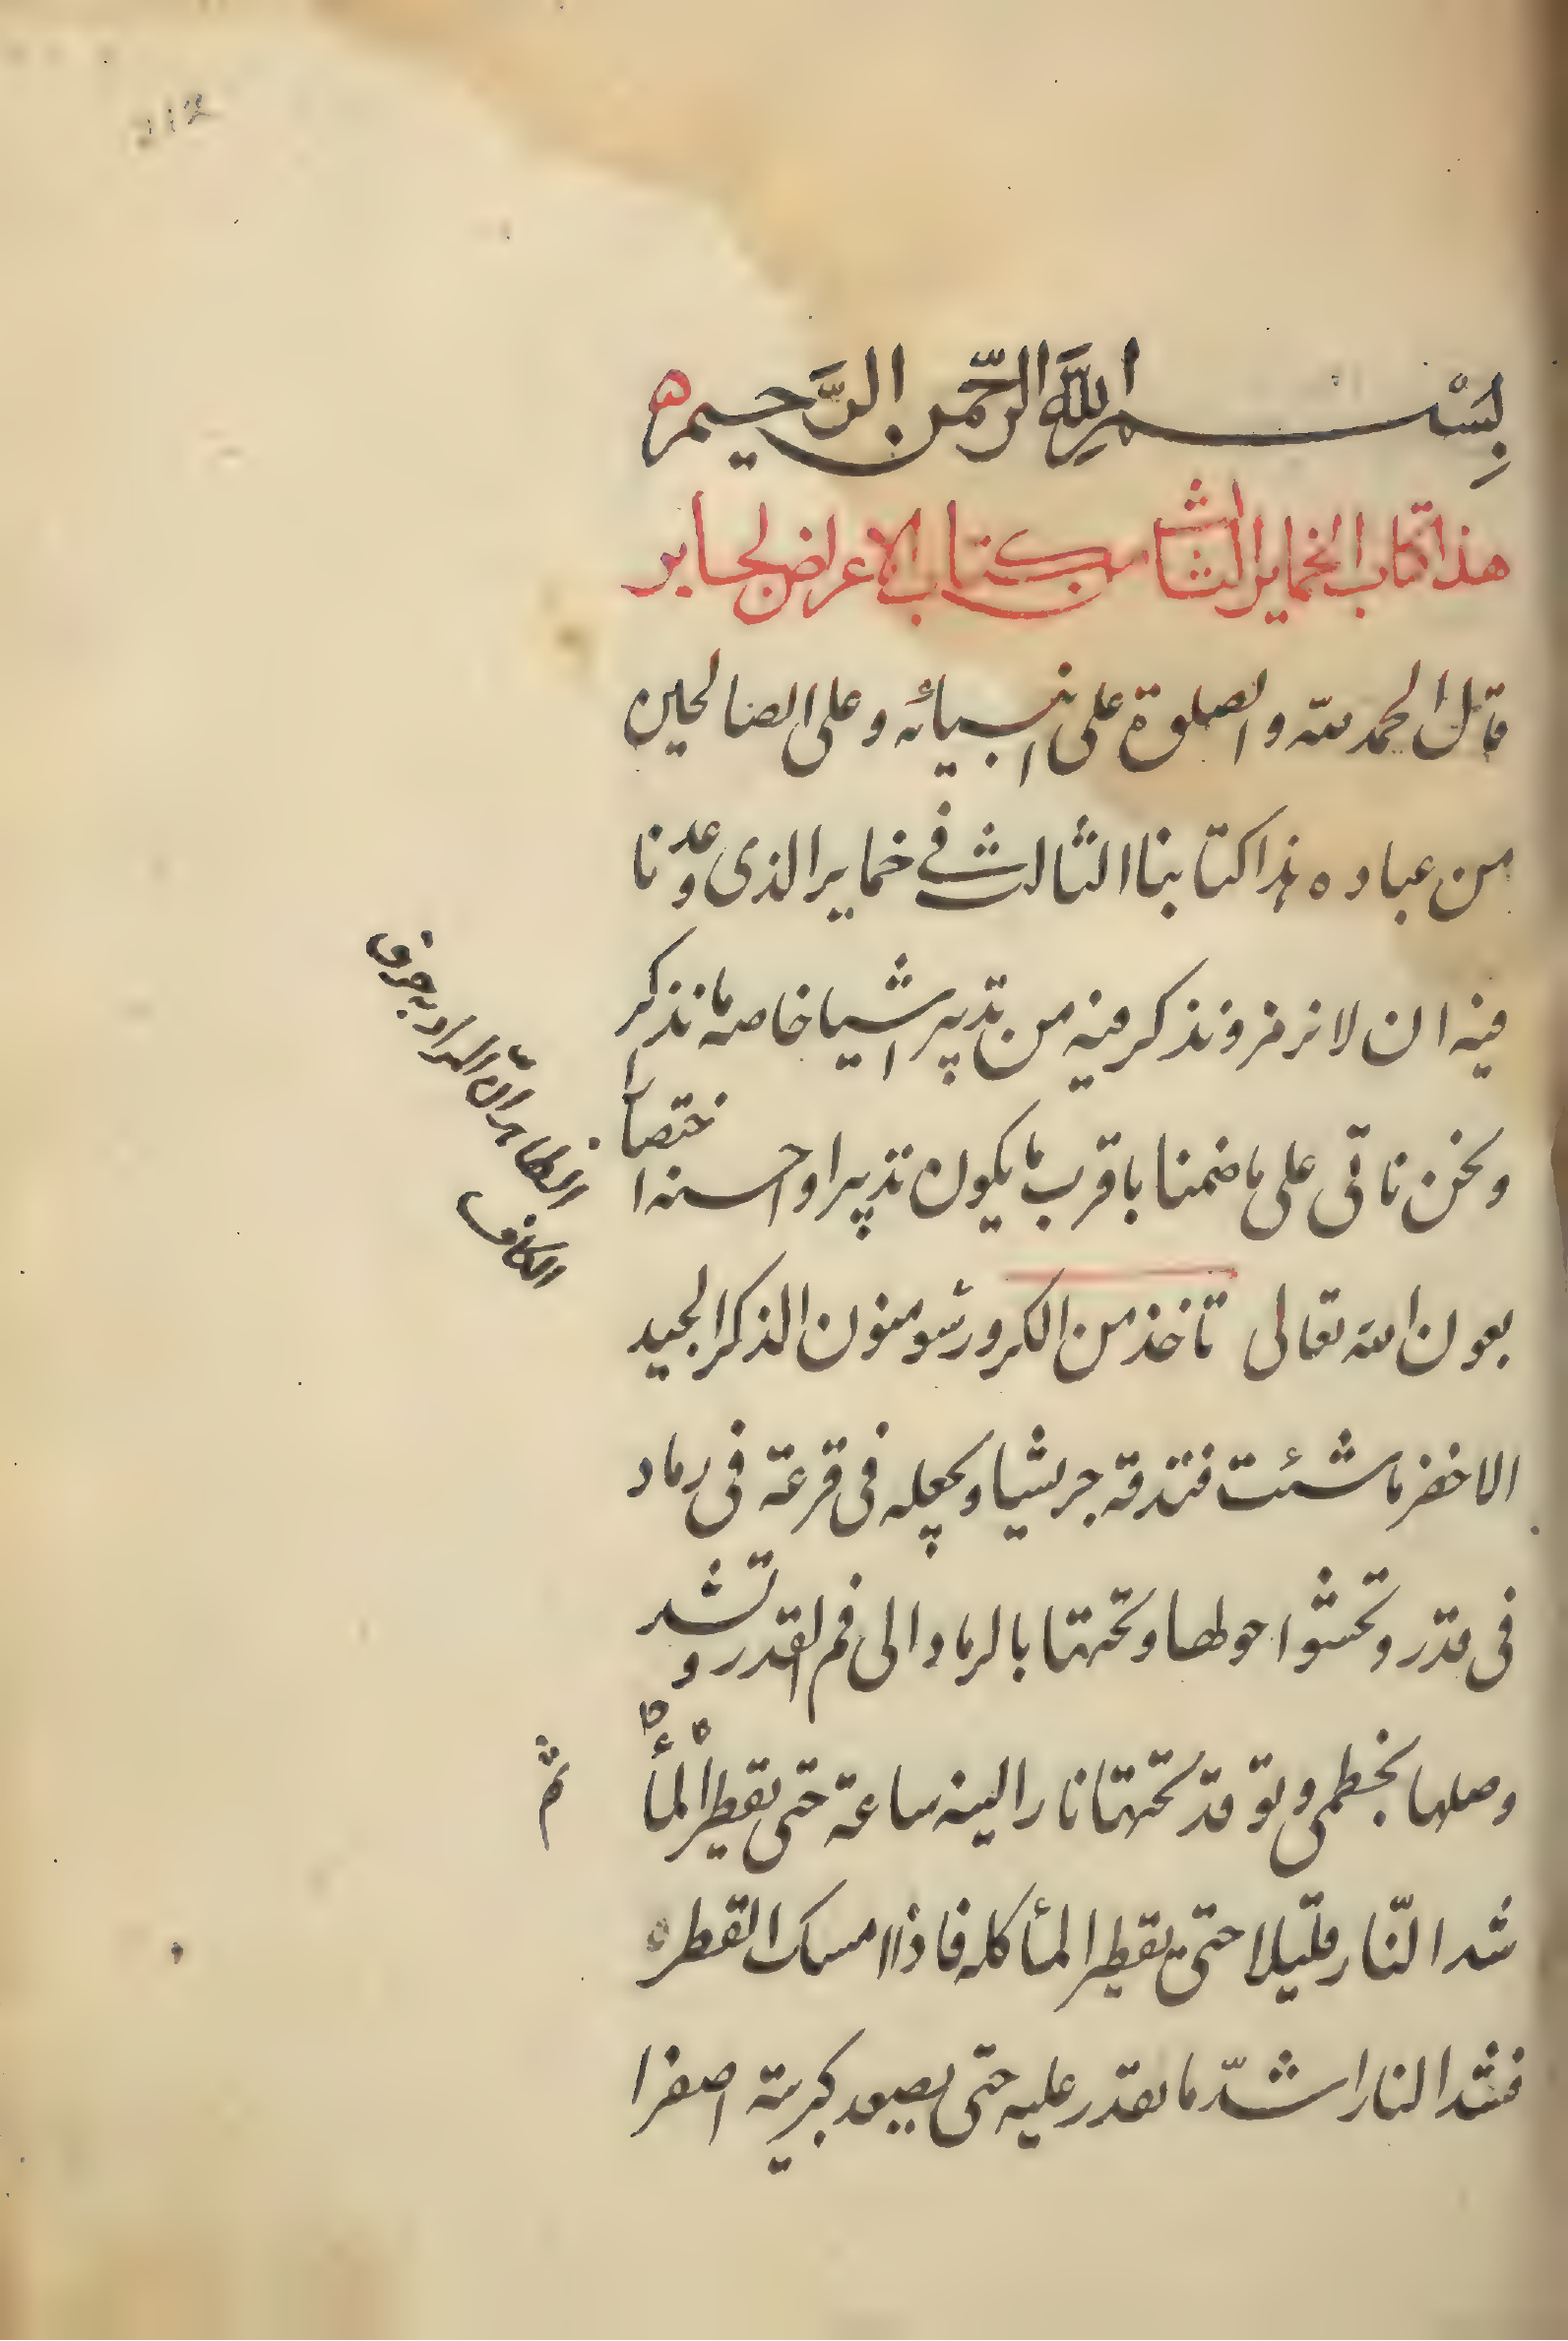 بِسْم الله الرّحمن الرَّحيم ه
هذا كتاب الخماير الثالث من كتاب الاعراض لجابر
قال الحمد لله والصلوة على انبيائه وعلى الصالحين
من عباده هذا كتابنا الثالث في خماير الذى وعدنا
فيه ان لا نرمز ونذكر فيه من تدبير اشيا خاصه ما نذكر
ونحن ناتى على ما ضمنا باقرب ما يكون تدبيرا واحسنه اختصارا
بعون الله تعالى تاخذ من الكرورشو منون الذكر الجيد
الاخضر ما شئت فتدقه جريشا وتجعله فى قرعة فى رماد
فى قدر وتحشوا حولها وتحتها بالرماد الى فم القدر وتشد
وصلها بخطمى وتوقد تحتها نارا لينه ساعة حتى يقطر المأ
ثم
شد النّار قليلا حتى يقطر المأ كله فاذا امسك القطر
فشد النار اشدّ ما تقدر عليه حتى يصعد كبريته اصفرا
الظاهر انّ المراد بحرف
الكاف
212